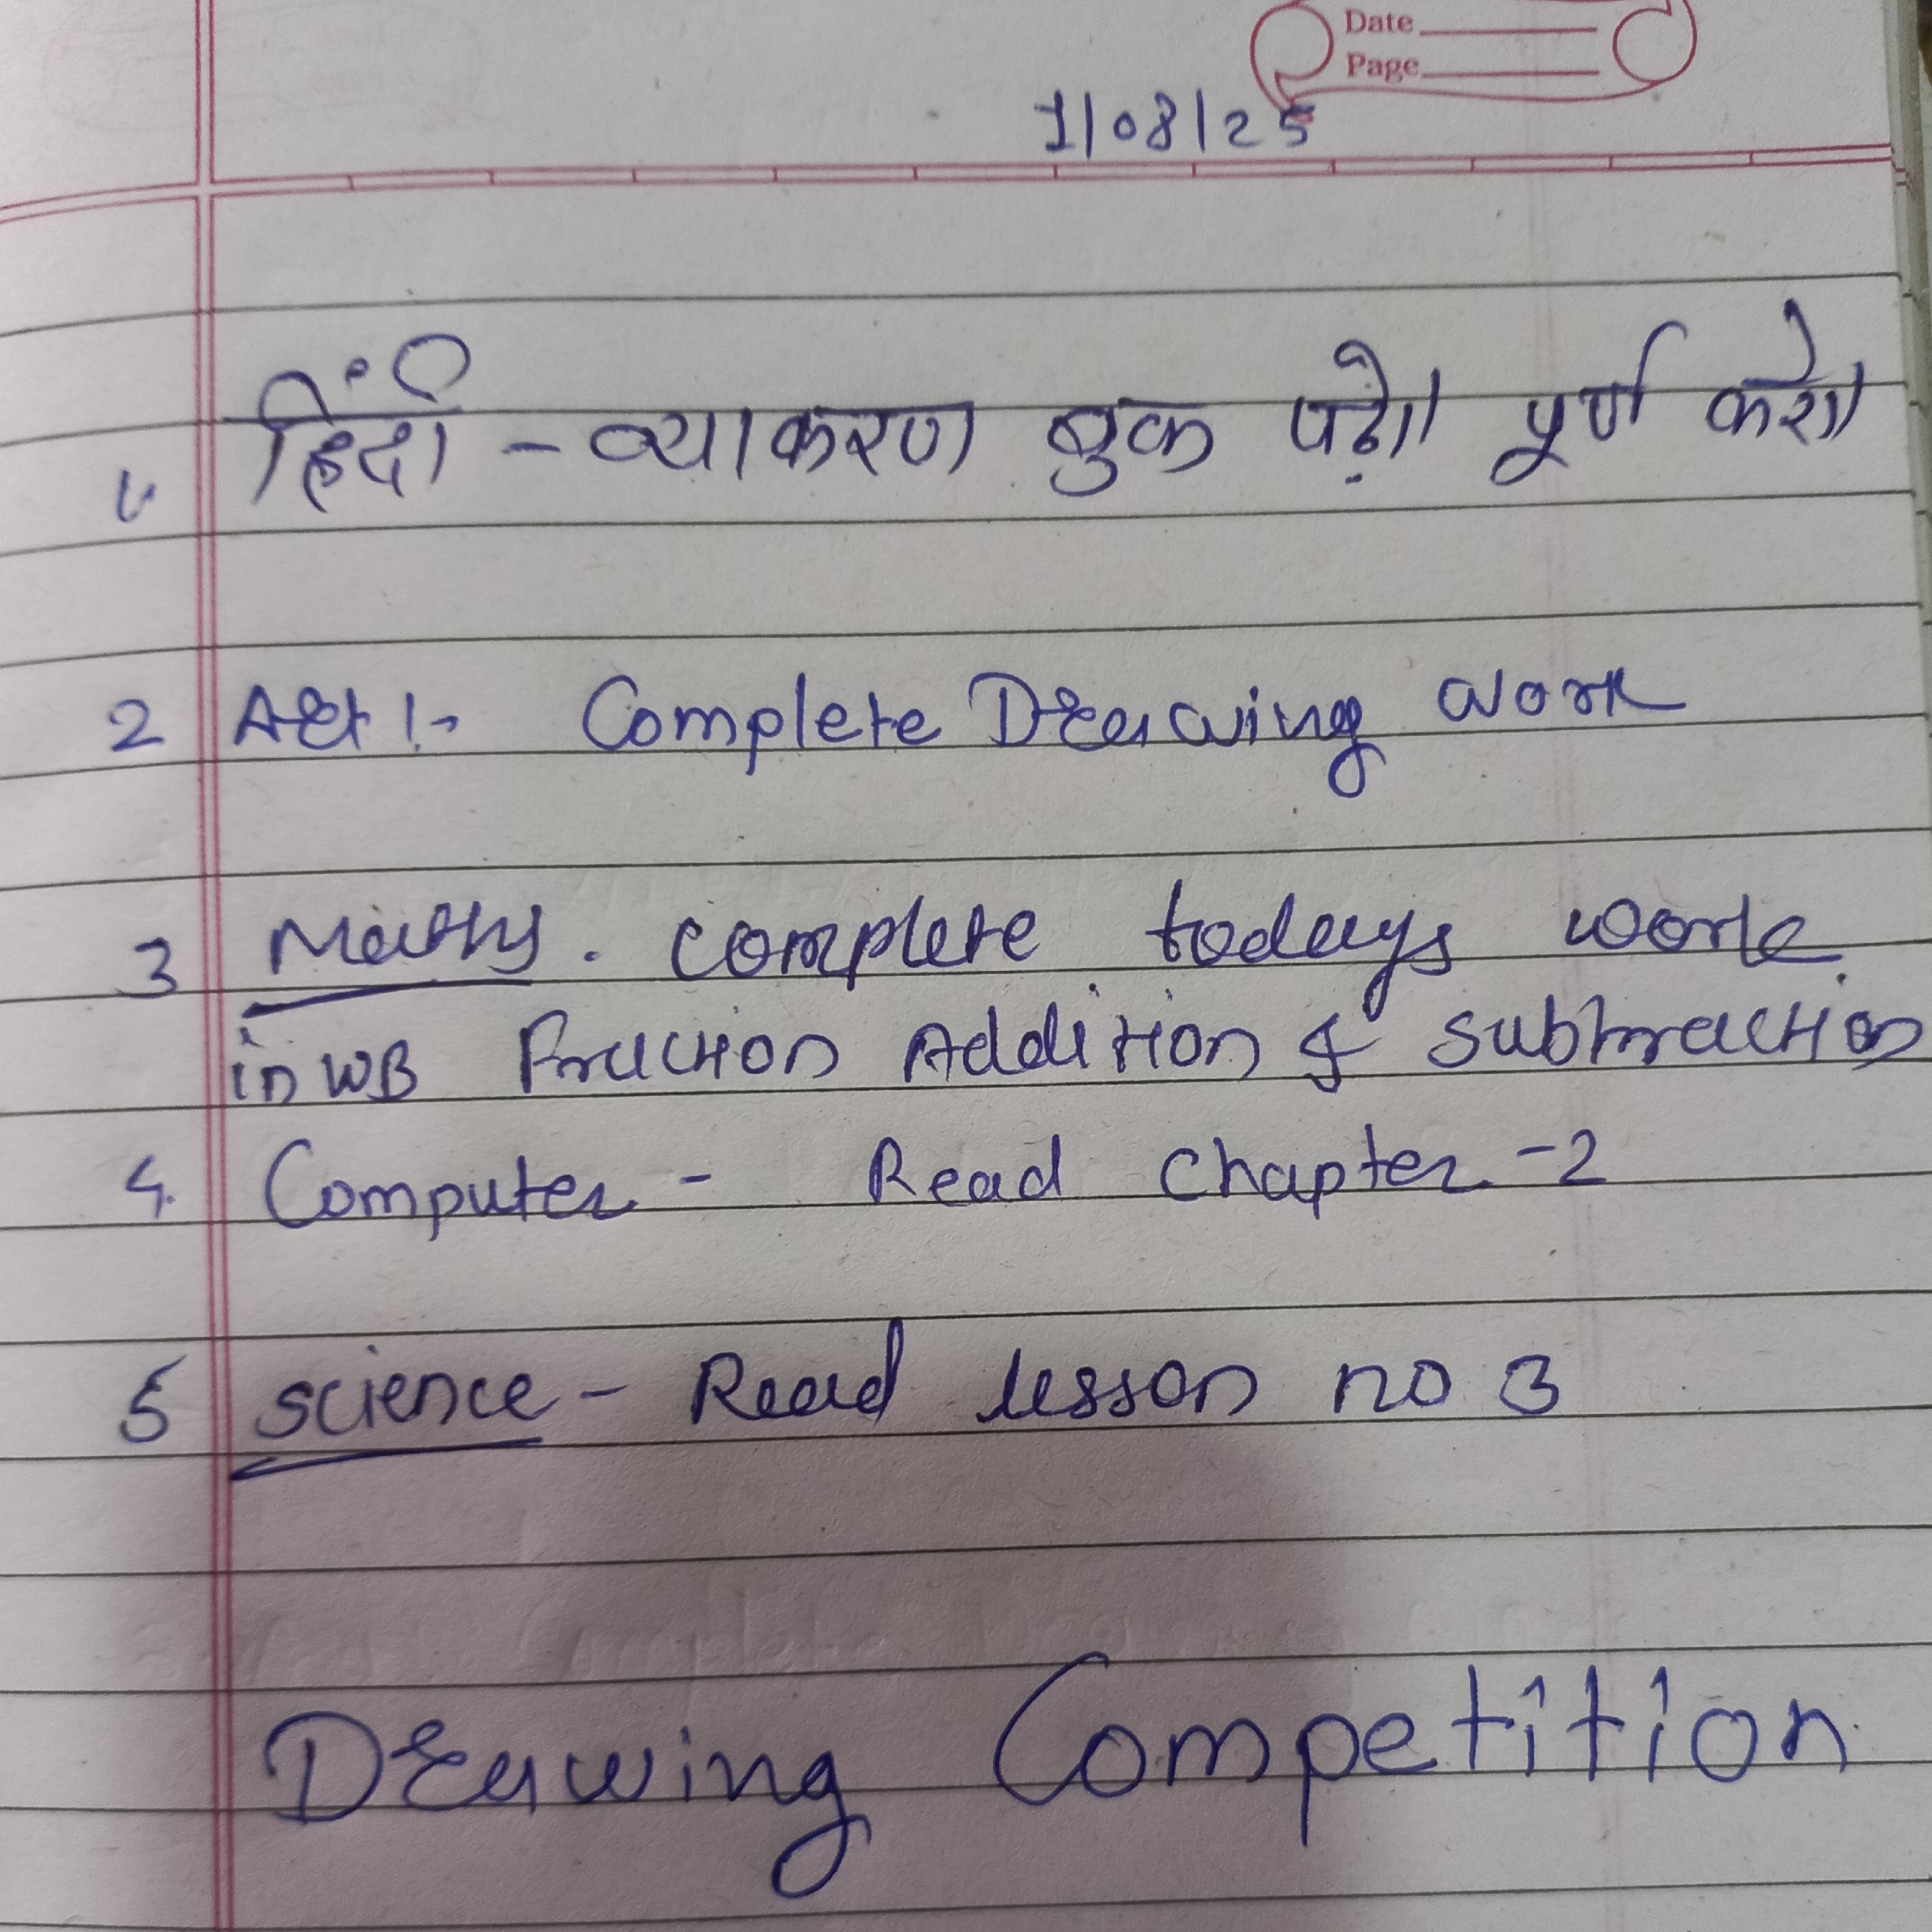 Date
Page
1/08/25
1. हिंदी - व्याकरण बुक पढ़ो पूर्ण करो
2 Art :- Complete Drawing work
3 Maths. complete todays work
in WB Fraction Addition & Subtraction
4. Computer - Read Chapter - 2
5 Science - Read lesson no 3
Drawing Competition